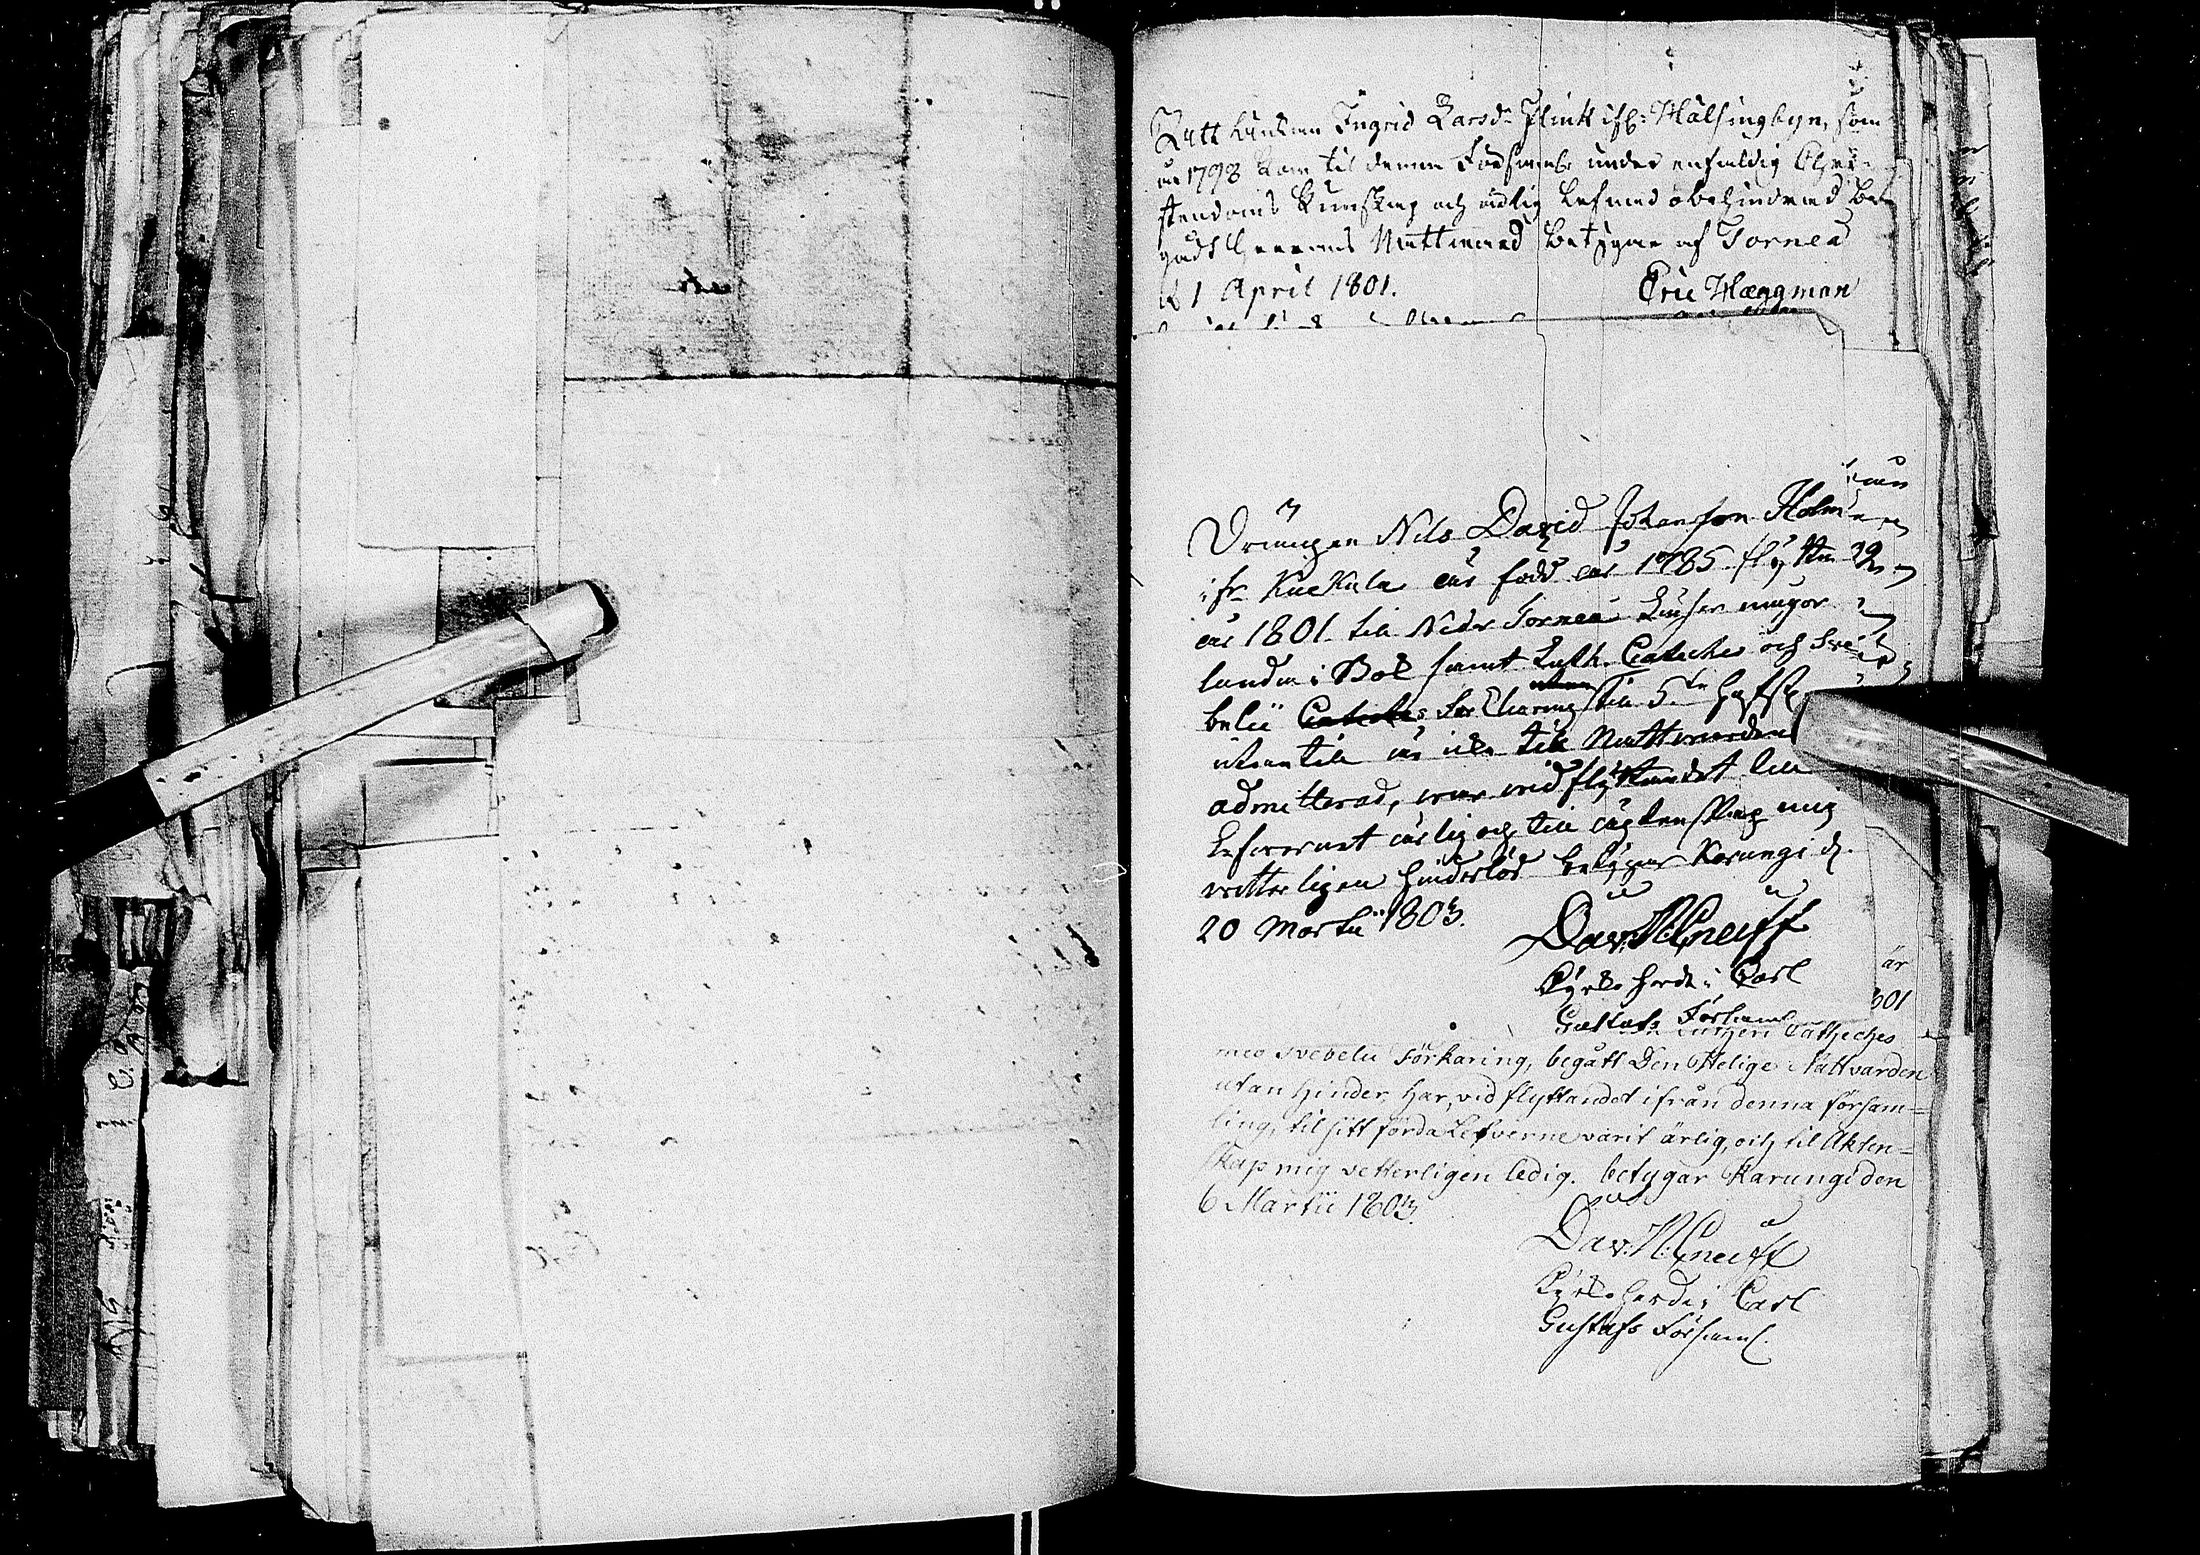 Ingrid Larsd:r Flink ifr: Hälsingbyn, som
år 1798 kom til denna Församl under enfaldig Chri-
stendoms kunskap och ärlig lefnad obehindrad be-
gådt Herrans Nattward betygar af Torneå
d 1 April 1801.
Eric Hæggman
Drängen Nils David Johansson Holm
ifr. Kuckula är född år 1785 flytta
år 1801 till Neder Torneå läser någor-
lunda i Bok samt Luth. Cateches och Sve-
belii Cateches förklaring utan till 5te
utantill är icke till Nattwarden
admitterad, war wid flyttandet till
Lefwernet ärlig och till äktenskap mig
vetterligen hinderlös betygar Karungi d.
20 Martii 1803.
Dav. N. Cneiff
Kyrkoherde i Carl
Gustafs Församl
är
801
Catheches
med Svebelii Förkaring, begått Den Helige Nattvarden
utan hinder, har, vid flyttandet ifrån denna försam-
ling, til sitt förda Lefverne varit ärlig, och til Äkten-
skap mig vetterligen ledig. betygar Karungi den
6 Martii 1803.
Dav. N. Cneiff
Kyrkoherde i Carl
Gustafs Församl.